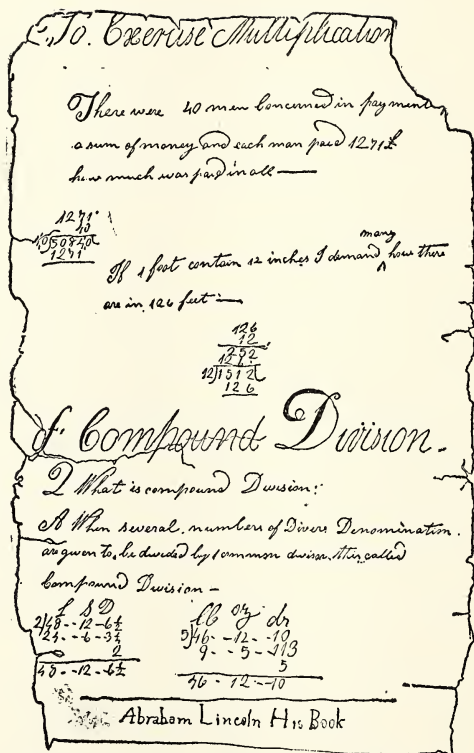 To. Exercise Multiplication
There were 40 men Concerned in payment
a sum of money and each man paid 1271£
how much was paid in all —
1271
40
40)50840(
1271
many
If 1 foot contain 12 inches I demand how there
^
are in 126 feet —
126
12
252
126
12)1512(
126
of Compound Division.
Q What is compound Division:
A When several numbers of Divers Denomination
are given to be divided by 1 common divisor this called
Compound Division —
£ S D
2)48--12-6½
24--6-3¼
2
48--12-6½
lb oz dr
5)46--12--10
9--5--113
5
46-12--10
Abraham Lincoln His Book